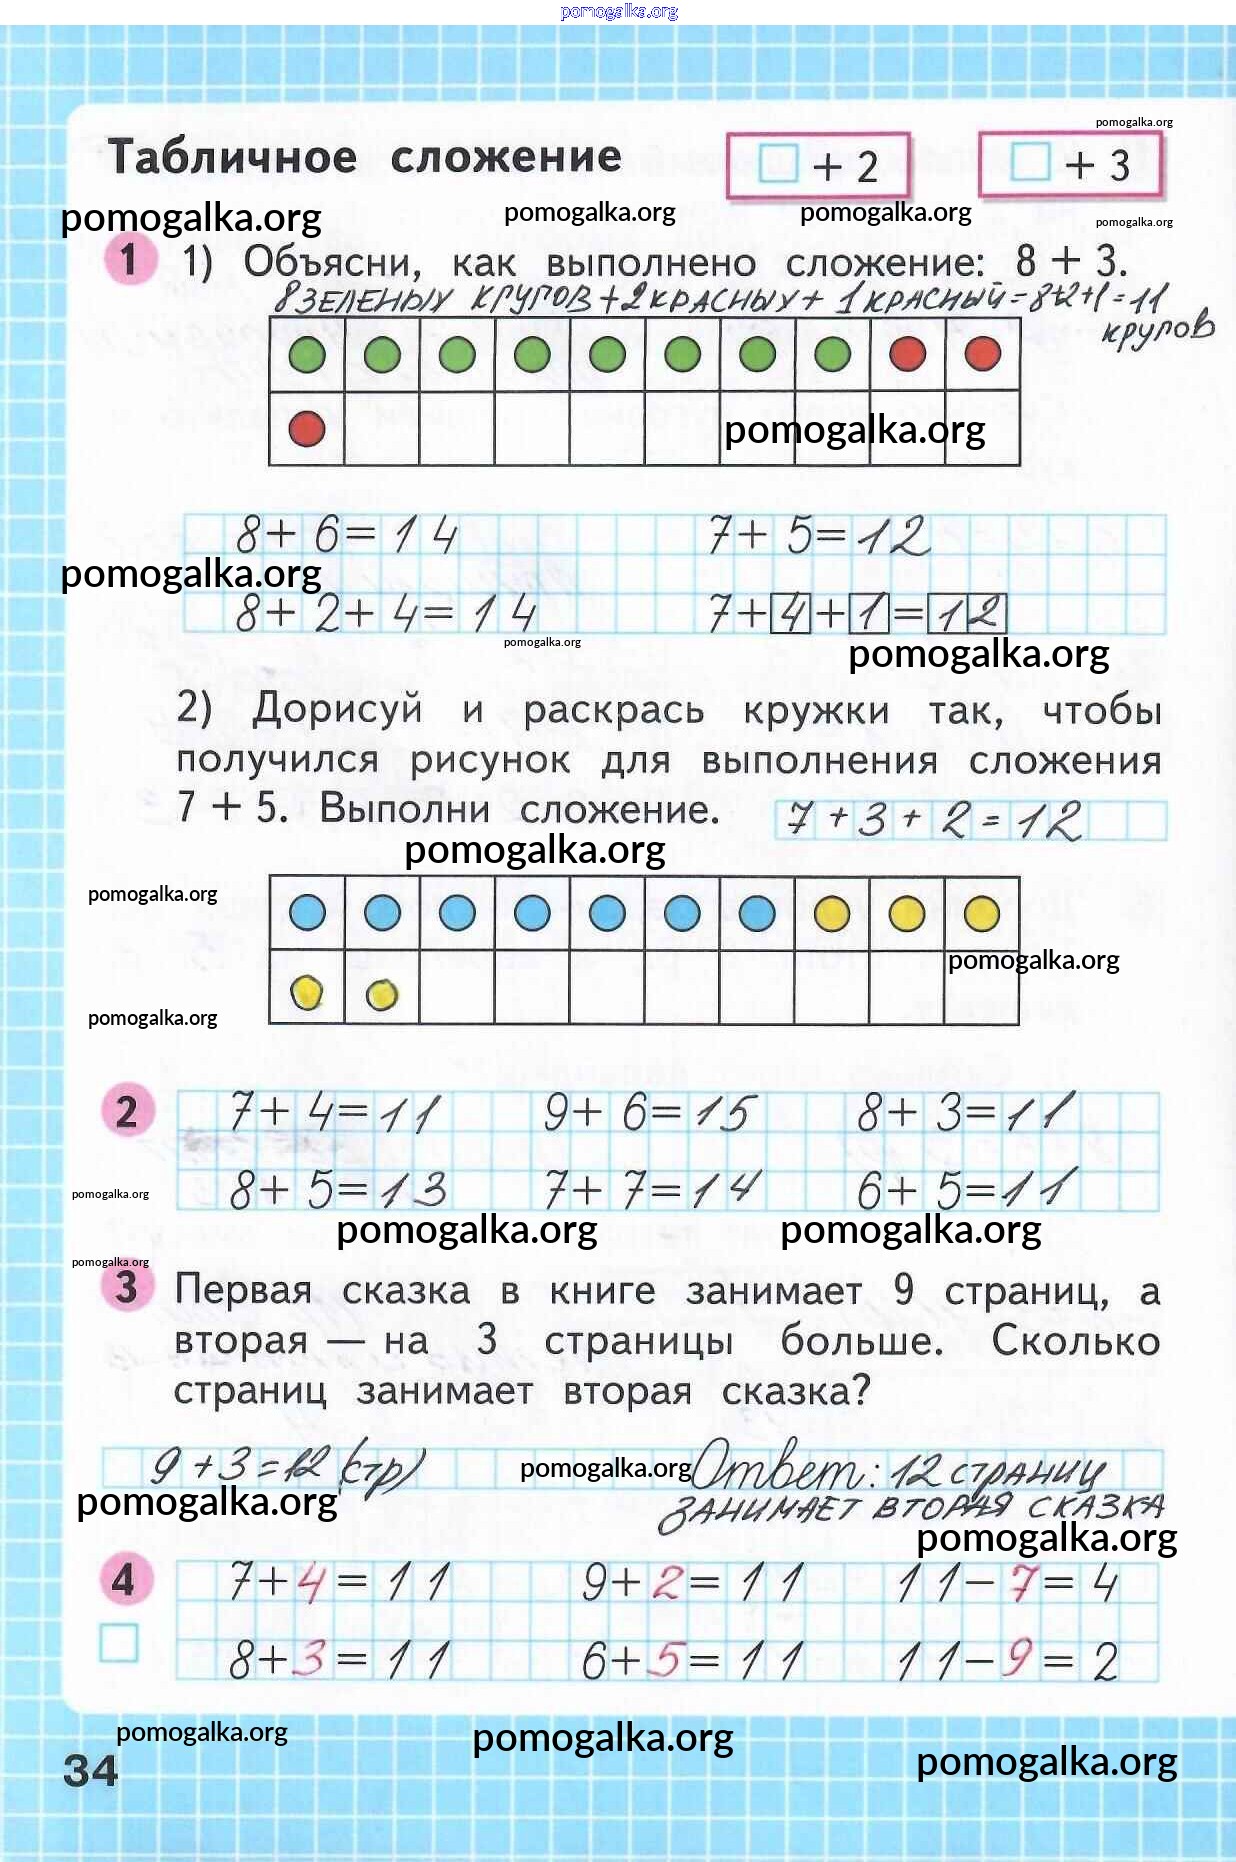 pomogalka.org
pomogalka.org
Табличное сложение
□ + 2
□ + 3
pomogalka.org pomogalka.org pomogalka.org pomogalka.org
1 1) Объясни, как выполнено сложение: 8 + 3.
8 ЗЕЛЕНЫХ КРУГОВ + 2 КРАСНЫХ + 1 КРАСНЫЙ = 8+2+1 = 11
кругов
pomogalka.org
8+ 6= 14 7+ 5= 12
pomogalka.org
8+ 2+ 4= 14 7+4+1=12
pomogalka.org
pomogalka.org
2) Дорисуй и раскрась кружки так, чтобы
получился рисунок для выполнения сложения
7 + 5. Выполни сложение. 7 + 3 + 2 = 12
pomogalka.org
pomogalka.org
pomogalka.org
pomogalka.org
2 7+ 4= 11 9+ 6= 15 8+ 3= 11
8+ 5= 13 7+ 7= 14 6+ 5= 11
pomogalka.org
pomogalka.org pomogalka.org
pomogalka.org
3 Первая сказка в книге занимает 9 страниц, а
вторая — на 3 страницы больше. Сколько
страниц занимает вторая сказка?
9 + 3 = 12 (стр) pomogalka.org Ответ: 12 страниц
pomogalka.org ЗАНИМАЕТ ВТОРАЯ СКАЗКА
pomogalka.org
4 7+4= 11 9+2= 11 11-7= 4
8+3= 11 6+5= 11 11-9= 2
pomogalka.org pomogalka.org
34 pomogalka.org